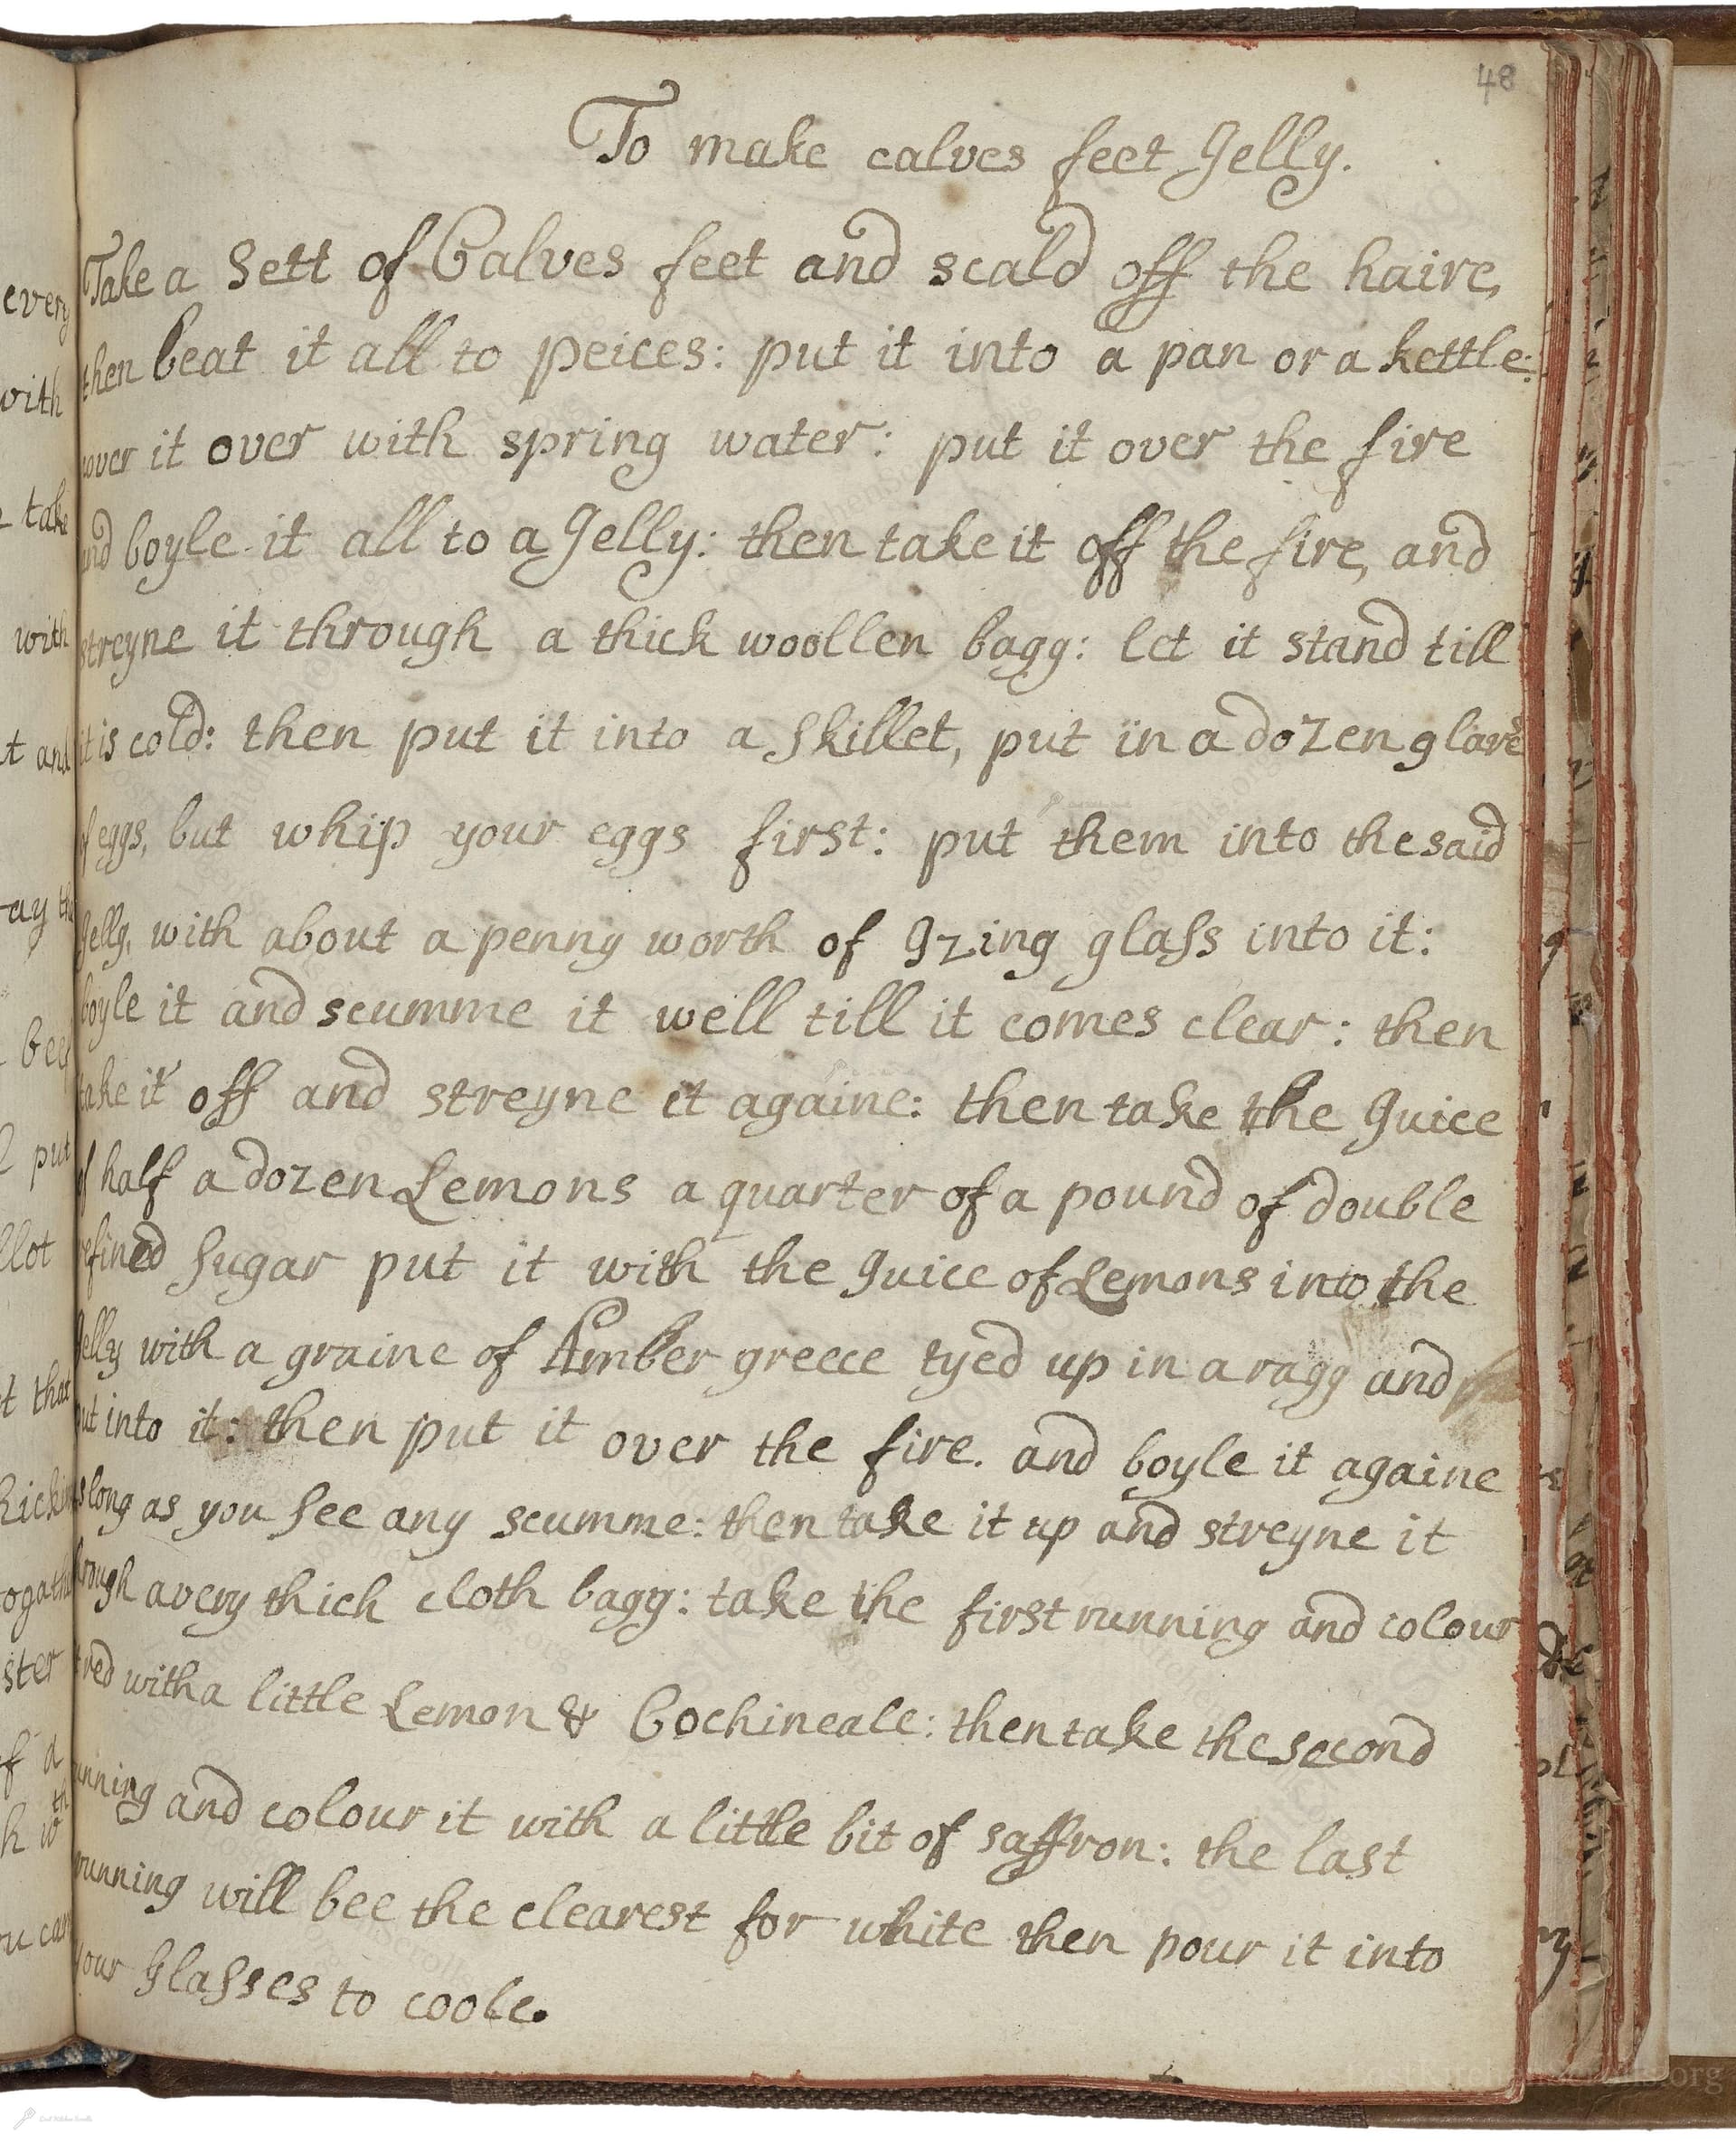 48
To make calves feet Jelly.
Take a Sett of Calves feet and scald off the haire,
then beat it all to peices: put it into a pan or a kettle:
cover it over with spring water: put it over the fire
and boyle it all to a Jelly: then take it off the fire, and
streyne it through a thick woollen bagg: let it stand till
it is cold: then put it into a Skillet, put in a dozen glare
of eggs, but whip your eggs first: put them into the said
Jelly, with about a penny worth of Izing glass into it:
boyle it and scumme it well till it comes clear: then
take it off and streyne it againe: then take the Juice
of half a dozen Lemons a quarter of a pound of double
refined Sugar put it with the Juice of Lemons into the
Jelly with a graine of Amber greece tyed up in a ragg and
put into it: then put it over the fire. and boyle it againe
as long as you see any scumme: then take it up and streyne it
through a very thick cloth bagg: take the first running and colour
it red with a little Lemon & Cochineale: then take the second
running and colour it with a little bit of saffron: the last
running will bee the clearest for white then pour it into
your Glasses to coole.
every
with
take
with
t and
ay the
bee
put
llot
t that
ster
of a
h wth
u can
LostKitchenScrolls.org
Lost Kitchen Scrolls